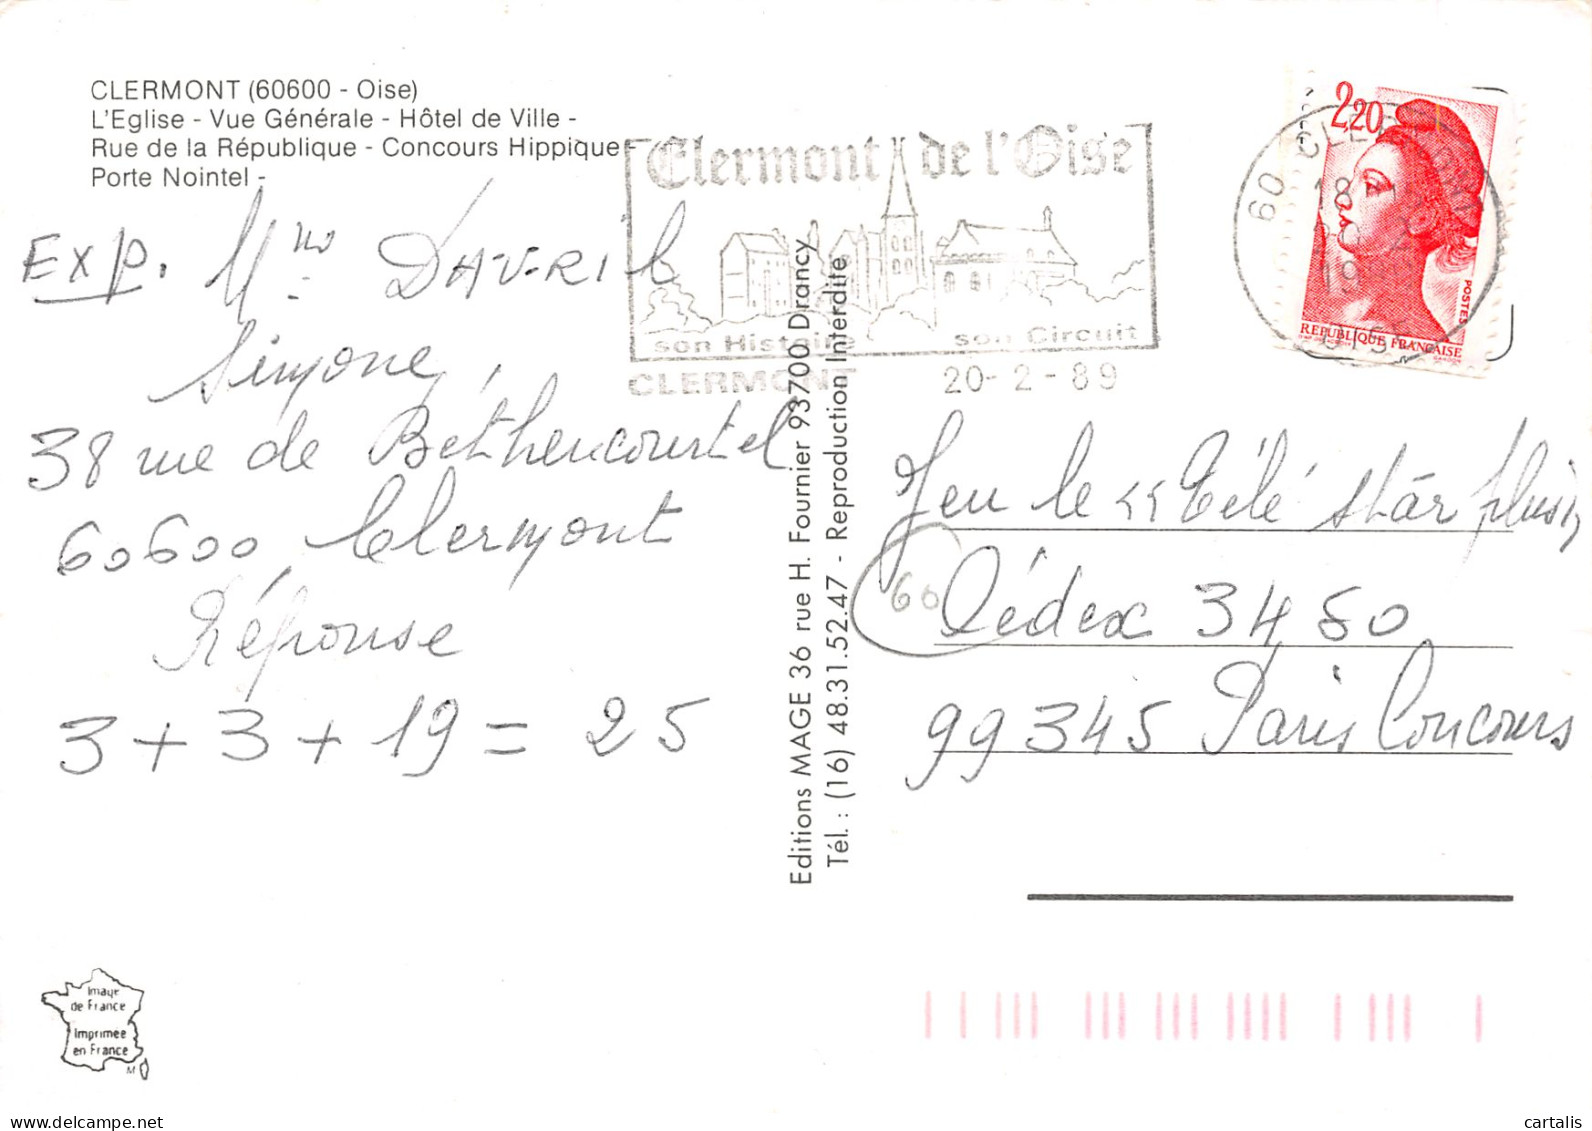 CLERMONT (60600 - Oise)
L'Eglise - Vue Générale - Hôtel de Ville -
Rue de la République - Concours Hippique
Porte Nointel -
Clermont de l'Oise
son Histoire son Circuit
CLERMONT 20-2-89
60 CLERMONT
18 H
19
OISE
2,20
POSTES
REPUBLIQUE FRANÇAISE
EXP. Mme DAVRIL
Simone,
38 rue de Béthencourtel
60600 Clermont
Réponse
3 + 3 + 19 = 25
Editions MAGE 36 rue H. Fournier 93700 Drancy
Tél. : (16) 48.31.52.47 - Reproduction Interdite
Jeu le "Télé star plus"
60 Cédex 3480
99345 Paris Concours
Image
de France
Imprimée
en France
M
delcampe.net
cartalis